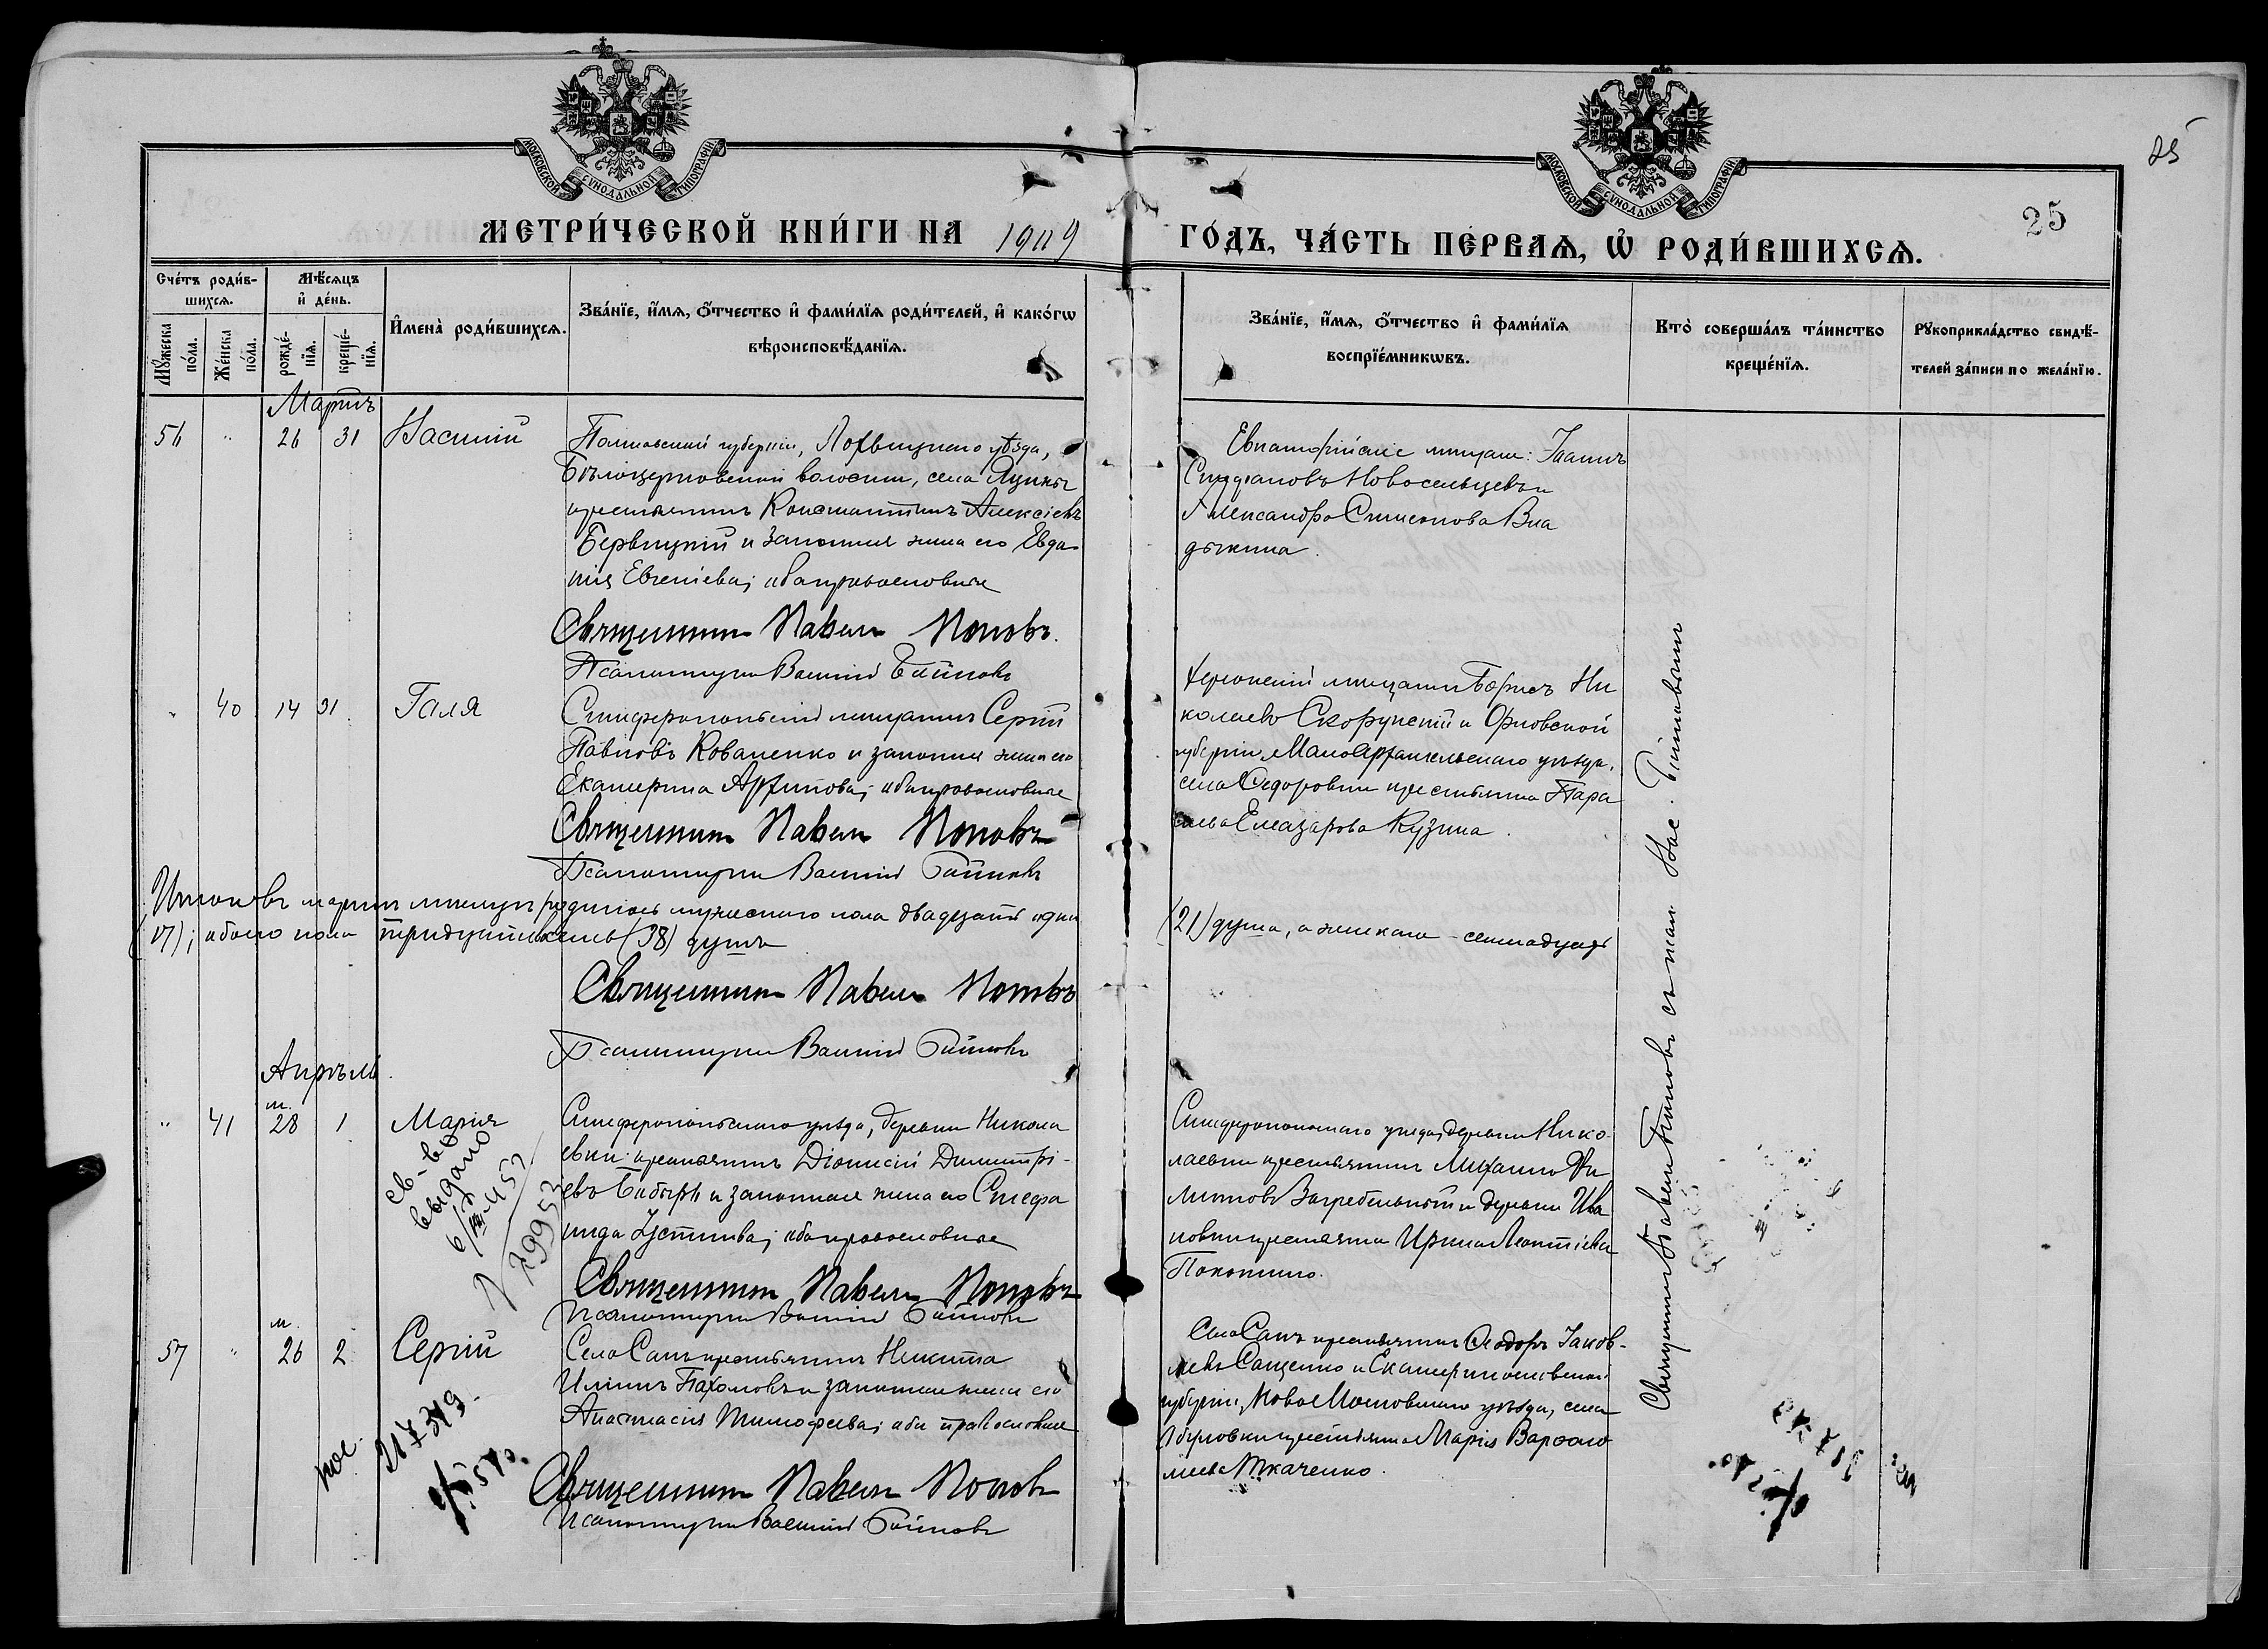 МОСКОВСКОЙ СѴНОДАЛЬНОЙ ТИПОГРАФІИ
МОСКОВСКОЙ СѴНОДАЛЬНОЙ ТИПОГРАФІИ
25
25
МЕТРИ́ЧЕСКОЙ КНИ́ГИ НА 1909 ГО́ДЪ, ЧА́СТЬ ПЕ́РВАѦ, Ѡ҆ РОДИ́ВШИХСѦ.
Сче́тъ роди́в-
шихсѧ.
Мѣ́сѧцъ
и҆ де́нь.
И҆менà роди́вшихсѧ.
Зва́нїе, и҆́мѧ, о҆́тчество и҆ фами́лїѧ роди́телей, и҆ како́гѡ
вѣроисповѣ́данїѧ.
Мꙋ́жеска
по́ла.
Же́нска
по́ла.
рожде́-
нїѧ.
креще́-
нїѧ.
Зва́нїе, и҆́мѧ, о҆́тчество и҆ фами́лїѧ
воспрїе́мникѡвъ.
Кто̀ соверша́лъ та́инство
креще́нїѧ.
Рꙋкоприкла́дство свидѣ́-
телей за́писи по жела́нїю.
Мартъ
56 " 26 31 Василій
Полтавской губерніи, Лохвицкаго уѣзда,
Бѣлоцерковской волости, села Яцины
крестьянинъ Константинъ Алексіевъ
Бервицкій и законная жена его Евдо-
кія Евгеніева; оба православные
Священникъ Павелъ Поповъ.
Псаломщикъ Василій
Евпаторійскіе мещане: Іоаннъ
Стефановъ Новосельцевъ и
Александра Симеонова Вла
дыкина.
" 40 14 31 Галя
Симферопольскій мещанинъ Сергій
Павловъ Коваленко и законная жена его
Екатерина Архипова; оба православные
Священникъ Павелъ Поповъ
Псаломщикъ Василій
Херсонскій мещанинъ Борисъ Ни
колаевъ Скорупскій и Орловской
губерніи, Малоархангельскаго уѣзда,
села Ѳедоровки крестьянка Пара
скева Елеазарова Кузина.
Итого въ мартѣ месяцѣ родилось мужескаго пола двадцать одна
(21) душа, а женскаго - семнадцать
(17); обоего пола тридцать восемь (38) душъ
Священникъ Павелъ Поповъ
Псаломщикъ Василій
Апрѣль.
" 41 м. 28 1 Марія
Симферопольскаго уѣзда, деревни Никола
евки крестьянинъ Діонисій Димитрі-
евъ и законная жена его Стефа
нида Устинова; оба православные
Священникъ Павелъ Поповъ
Псаломщикъ Василій
св-во
выдано
Симферопольскаго уѣзда, деревни Нико-
лаевки крестьянинъ Михаилъ Фи
липповъ Загребельный и деревни Ива
новки крестьянка Ирина Леонтіева
57 " м. 26 2 Сергій
Село Сакъ крестьянинъ Никита
Ильинъ Пахомовъ и законная жена его
Анастасія Тимофеева; оба православные
Священникъ Павелъ Поповъ
Псаломщикъ Василій
Села Сакъ крестьянинъ Ѳеодоръ Іаков-
левъ Саценко и Екатеринославской
губерніи, Новомосковскаго уѣзда, села
крестьянка Марія Варѳоло
меева Ткаченко.